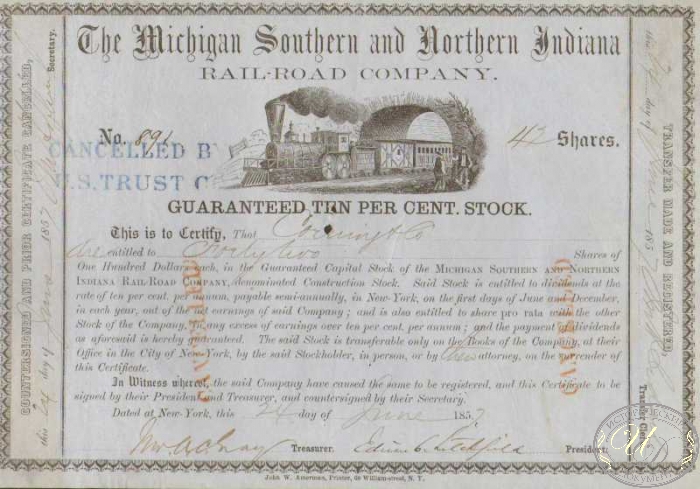 The Michigan Southern and Northern Indiana
RAIL-ROAD COMPANY.
No. 891
42 Shares.
CANCELLED B
U.S. TRUST C
GUARANTEED TEN PER CENT. STOCK.
This is to Certify, That Corning & Co
are entitled to Forty two Shares of
One Hundred Dollars each, in the Guaranteed Capital Stock of the MICHIGAN SOUTHERN AND NORTHERN
INDIANA RAIL-ROAD COMPANY, denominated Construction Stock. Said Stock is entitled to dividends at the
rate of ten per cent. per annum, payable semi-annually, in New-York, on the first days of June and December,
in each year, out of the net earnings of said Company; and is also entitled to share pro rata with the other
Stock of the Company, in any excess of earnings over ten per cent. per annum; and the payment of dividends
as aforesaid is hereby guaranteed. The said Stock is transferable only on the Books of the Company, at their
Office in the City of New-York, by the said Stockholder, in person, or by their attorney, on the surrender of
this Certificate.
In Witness whereof, the said Company have caused the same to be registered, and this Certificate to be
signed by their President and Treasurer, and countersigned by their Secretary.
Dated at New-York, this 24 day of June 1857
Treasurer.
President.
John W. Amerman, Printer, 60 William-street, N. Y.
COUNTERSIGNED AND PRIOR CERTIFICATE CANCELLED,
this 24 day of June 1857
Secretary.
TRANSFER MADE AND REGISTERED,
this day of June 1857
Transfer Clerk
CANCELLED
CANCELLED
ИСТОРИЧЕСКИЙ
И Д
ДОКУМЕНТ